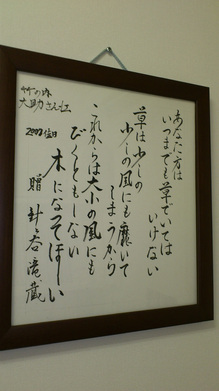 あなた方は
いつまでも草でいては
いけない
草は少しの
少しの風にも靡いて
しまうから
これからは大小の風にも
びくともしない
木になってほしい
贈 井ヶ谷滝蔵
竹の内
大助さん江